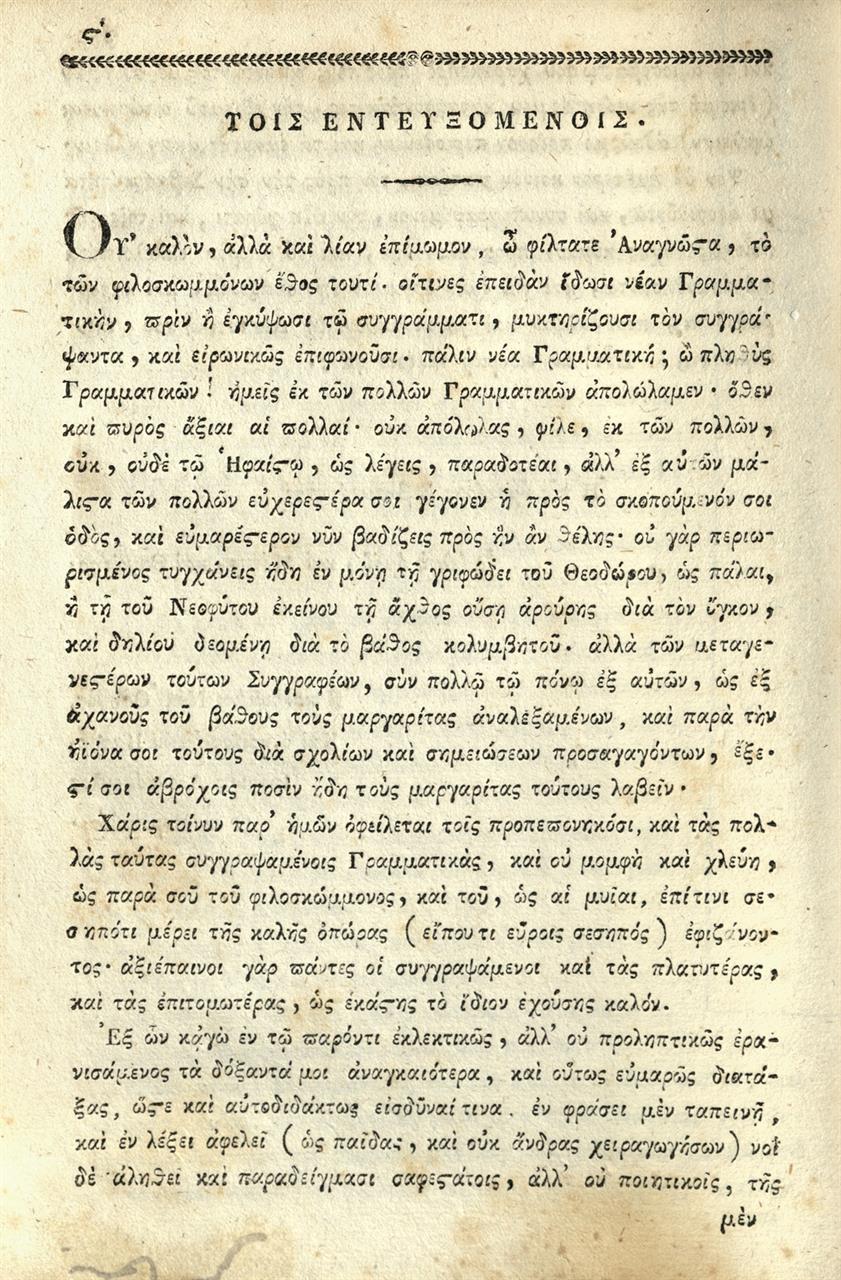 ϛʹ.
ΤΟΙΣ ΕΝΤΕΥΞΟΜΕΝΟΙΣ.
Οὐ καλὸν, ἀλλὰ καὶ λίαν ἐπίμωμον, ὦ φίλτατε Ἀναγνῶϛα, τὸ
τῶν φιλοσκωμμόνων ἔθος τουτί· οἵτινες ἐπειδὰν ἴδωσι νέαν Γραμμα-
τικὴν, πρὶν ἢ ἐγκύψωσι τῷ συγγράμματι, μυκτηρίζουσι τὸν συγγρά-
ψαντα, καὶ εἰρωνικῶς ἐπιφωνοῦσι· πάλιν νέα Γραμματική; ὢ πληθὺς
Γραμματικῶν! ἡμεῖς ἐκ τῶν πολλῶν Γραμματικῶν ἀπολώλαμεν· ὅθεν
καὶ πυρὸς ἄξιαι αἱ πολλαί· οὐκ ἀπόλωλας, φίλε, ἐκ τῶν πολλῶν,
οὐκ, οὐδὲ τῷ Ἡφαίϛῳ, ὡς λέγεις, παραδοτέαι, ἀλλ' ἐξ αὐτῶν μά-
λιϛα τῶν πολλῶν εὐχερεϛέρα σοι γέγονεν ἡ πρὸς τὸ σκοπούμενόν σοι
ὁδὸς, καὶ εὐμαρέϛερον νῦν βαδίζεις πρὸς ἣν ἂν θέλῃς· οὐ γὰρ περιω-
ρισμένος τυγχάνεις ἤδη ἐν μόνῃ τῇ γριφώδει τοῦ Θεοδώρου, ὡς πάλαι,
ἢ τῇ τοῦ Νεοφύτου ἐκείνου τῇ ἄχθος οὔσῃ ἀρούρης διὰ τὸν ὄγκον,
καὶ δηλίου δεομένῃ διὰ τὸ βάθος κολυμβητοῦ· ἀλλὰ τῶν μεταγε-
νεϛέρων τούτων Συγγραφέων, σὺν πολλῷ τῷ πόνῳ ἐξ αὐτῶν, ὡς ἐξ
ἀχανοῦς τοῦ βάθους τοὺς μαργαρίτας ἀναλεξαμένων, καὶ παρὰ τὴν
ἠϊόνα σοι τούτους διὰ σχολίων καὶ σημειώσεων προσαγαγόντων, ἔξε-
ϛί σοι ἀβρόχοις ποσὶν ἤδη τοὺς μαργαρίτας τούτους λαβεῖν·
Χάρις τοίνυν παρ' ἡμῶν ὀφείλεται τοῖς προπεπονηκόσι, καὶ τὰς πολ-
λὰς ταύτας συγγραψαμένοις Γραμματικὰς, καὶ οὐ μομφὴ καὶ χλεύη,
ὡς παρὰ σοῦ τοῦ φιλοσκώμμονος, καὶ τοῦ, ὡς αἱ μυῖαι, ἐπίτινι σε-
σηπότι μέρει τῆς καλῆς ὀπώρας (εἴπου τι εὕροις σεσηπός) ἐφιζάνον-
τος· ἀξιέπαινοι γὰρ πάντες οἱ συγγραψάμενοι καὶ τὰς πλατυτέρας,
καὶ τὰς ἐπιτομωτέρας, ὡς ἑκάϛης τὸ ἴδιον ἐχούσης καλόν.
Ἐξ ὧν κᾀγὼ ἐν τῷ παρόντι ἐκλεκτικῶς, ἀλλ' οὐ προληπτικῶς ἐρα-
νισάμενος τὰ δόξαντά μοι ἀναγκαιότερα, καὶ οὕτως εὐμαρῶς διατά-
ξας, ὥϛε καὶ αὐτοδιδάκτως εἰσδῦναί τινα. ἐν φράσει μὲν ταπεινῇ,
καὶ ἐν λέξει ἀφελεῖ (ὡς παῖδας, καὶ οὐκ ἄνδρας χειραγωγήσων) νοῒ
δὲ ἀληθεῖ καὶ παραδείγμασι σαφεϛάτοις, ἀλλ' οὐ ποιητικοῖς, τῆς
μὲν